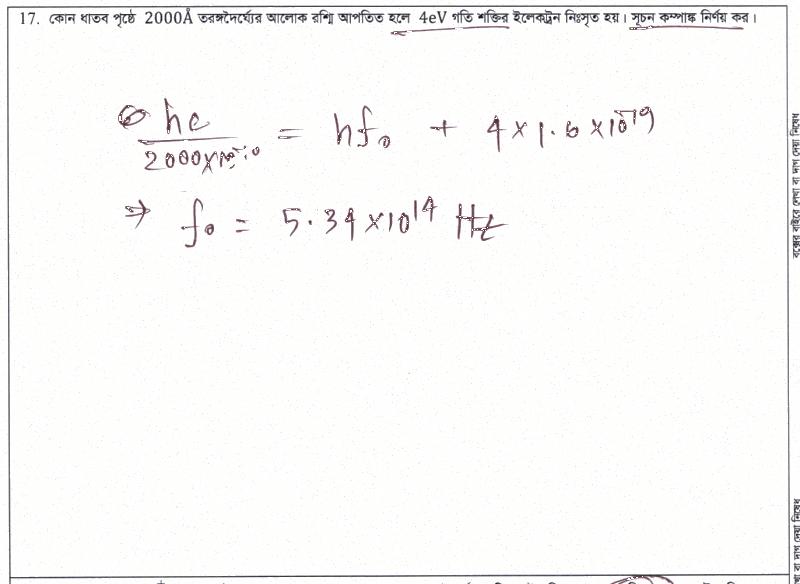 17. কোন ধাতব পৃষ্ঠে 2000Å তরঙ্গদৈর্ঘ্যের আলোক রশ্মি আপতিত হলে 4eV গতি শক্তির ইলেকট্রন নিঃসৃত হয়। সূচন কম্পাঙ্ক নির্ণয় কর।
hc / 2000×10⁻¹⁰ = hf₀ + 4×1.6×10⁻¹⁹
⇒ f₀ = 5.34×10¹⁴ Hz
বক্সের বাইরে লেখা বা দাগ দেয়া নিষেধ
বা দাগ দেয়া নিষেধ